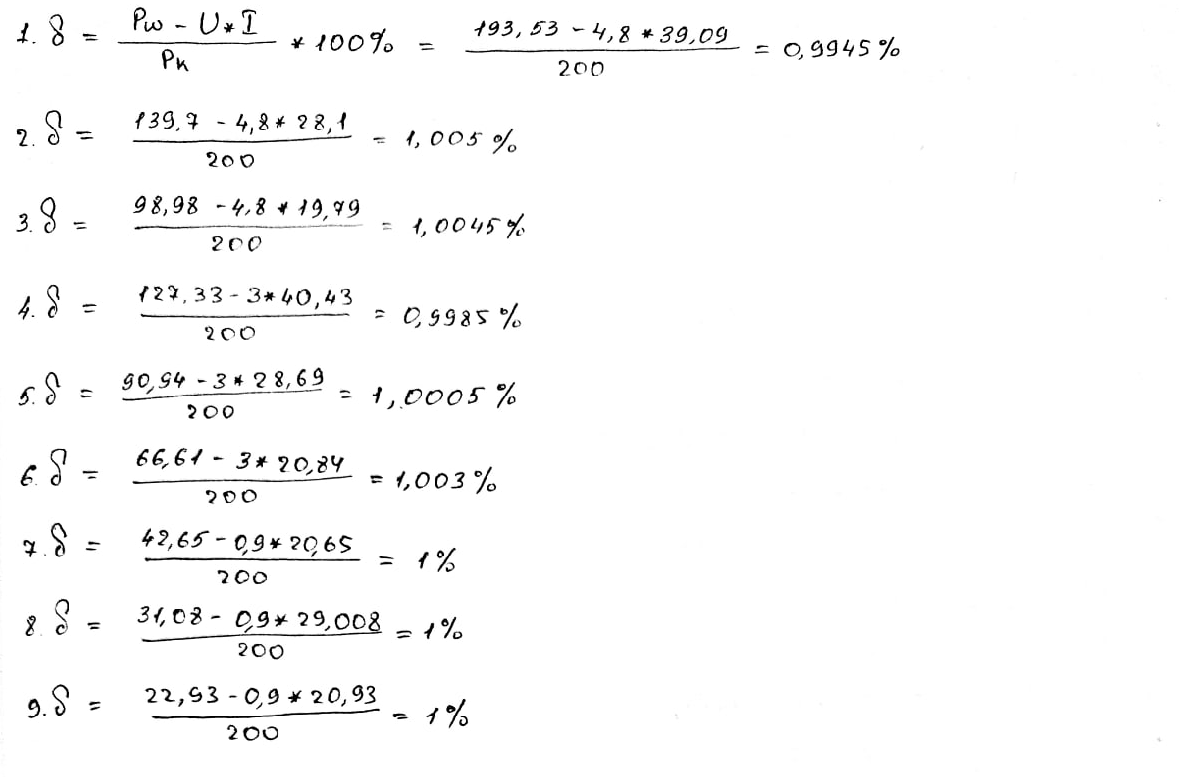 1. δ = (Pw - U*I) / Pк * 100% = (193,53 - 4,8 * 39,09) / 200 = 0,9945%
2. δ = (139,7 - 4,8 * 28,1) / 200 = 1,005%
3. δ = (98,98 - 4,8 * 19,79) / 200 = 1,0045%
4. δ = (127,33 - 3*40,43) / 200 = 0,9985%
5. δ = (90,94 - 3*28,69) / 200 = 1,0005%
6. δ = (66,61 - 3*20,84) / 200 = 1,003%
7. δ = (42,65 - 0,9*20,65) / 200 = 1%
8. δ = (31,08 - 0,9*29,008) / 200 = 1%
9. δ = (22,93 - 0,9*20,93) / 200 = 1%